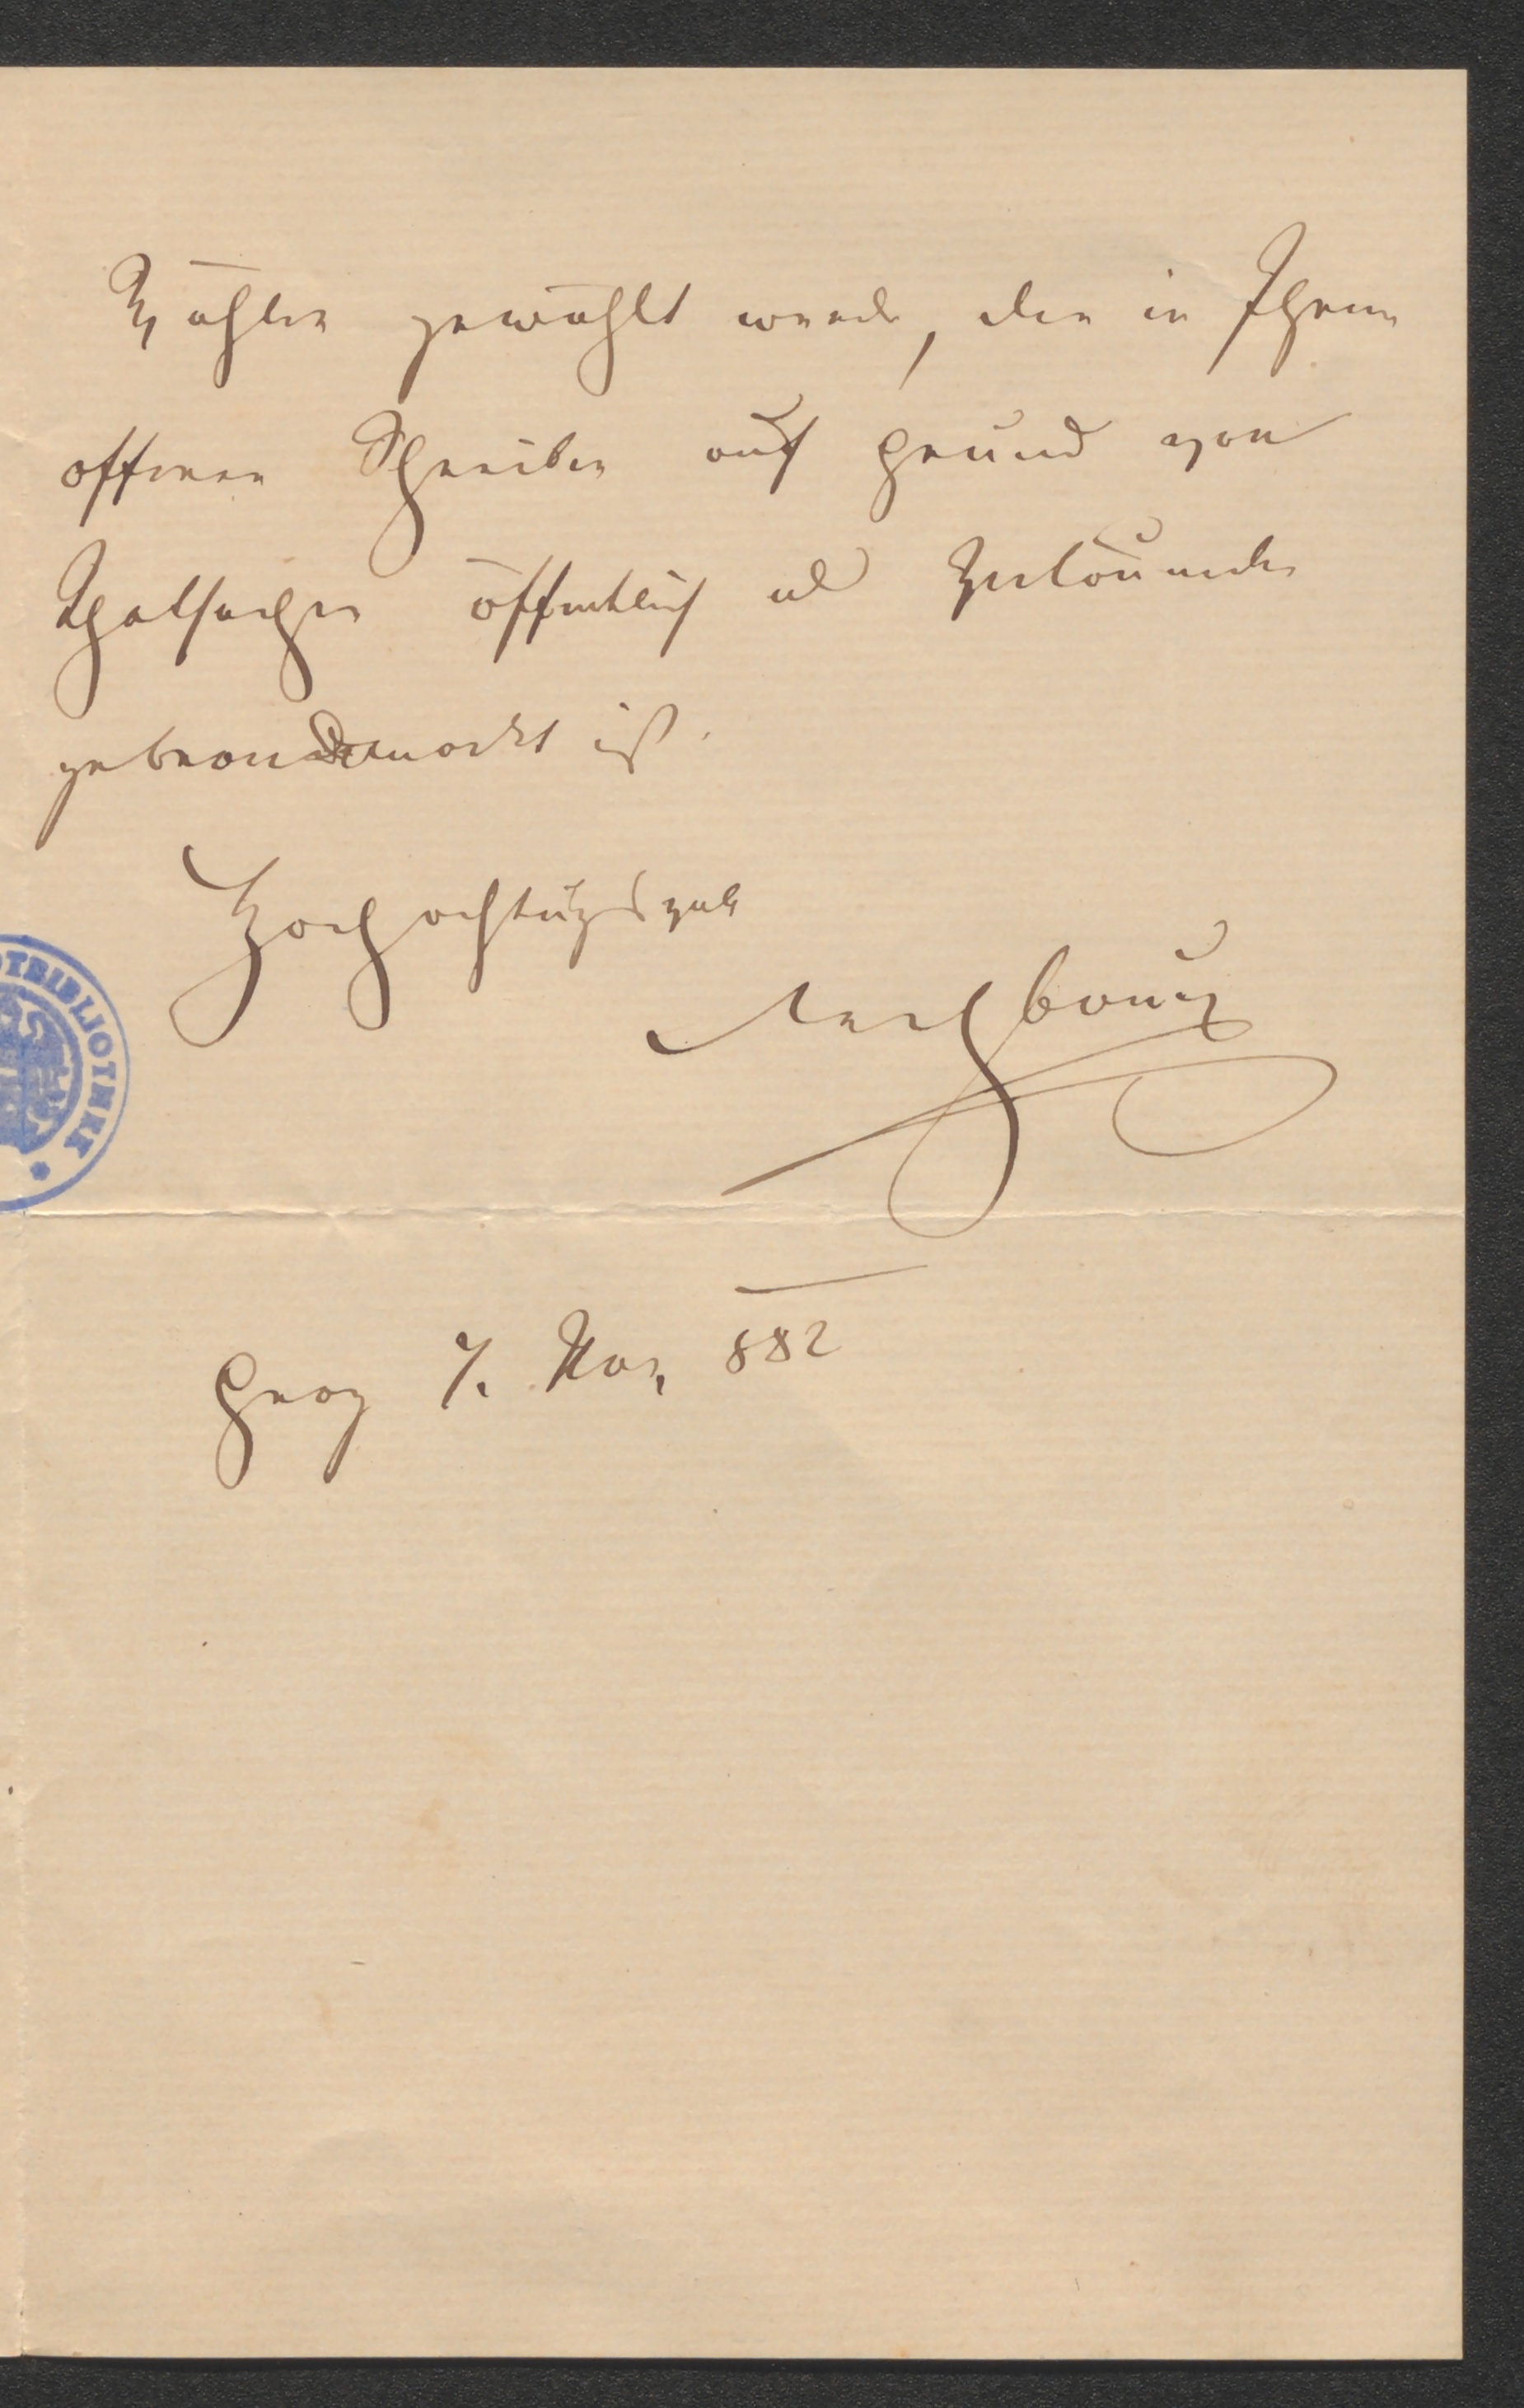 Wähler gewählt werde, der in Ihrem
offenen Schreiben auf Grund von
Thatsachen öffentlich als
gebrandmarkt ist.
Hochachtungsvoll
Rechbauer
Graz 7. Nov. 882
OTBIBLIOTHEK